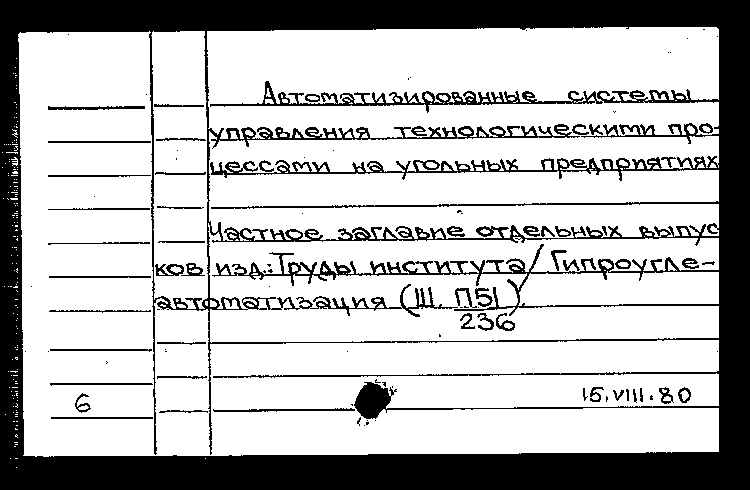 Автоматизированные системы
управления технологическими про-
цессами на угольных предприятиях
Частное заглавие отдельных выпус
ков изд.: Труды института / Гипроугле-
автоматизация (III. П51).
236
6
15.VIII.80